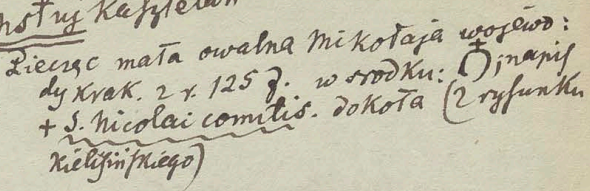 Kasztelan
Pieczęć mała owalna Mikołaja wojewo:
dy krak. z r. 125 . w środku: ; napis
+ S. Nicolai comitis. dokoła (z rysunku
Kielisińskiego)